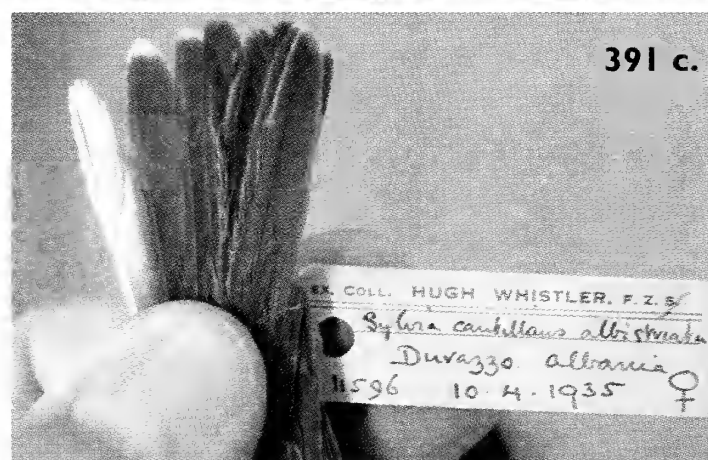 391 c.
EX. COLL. HUGH WHISTLER. F. Z. S/
Sylvia cantillans albistriata
Durazzo. albania
11596 10.4.1935 ♀